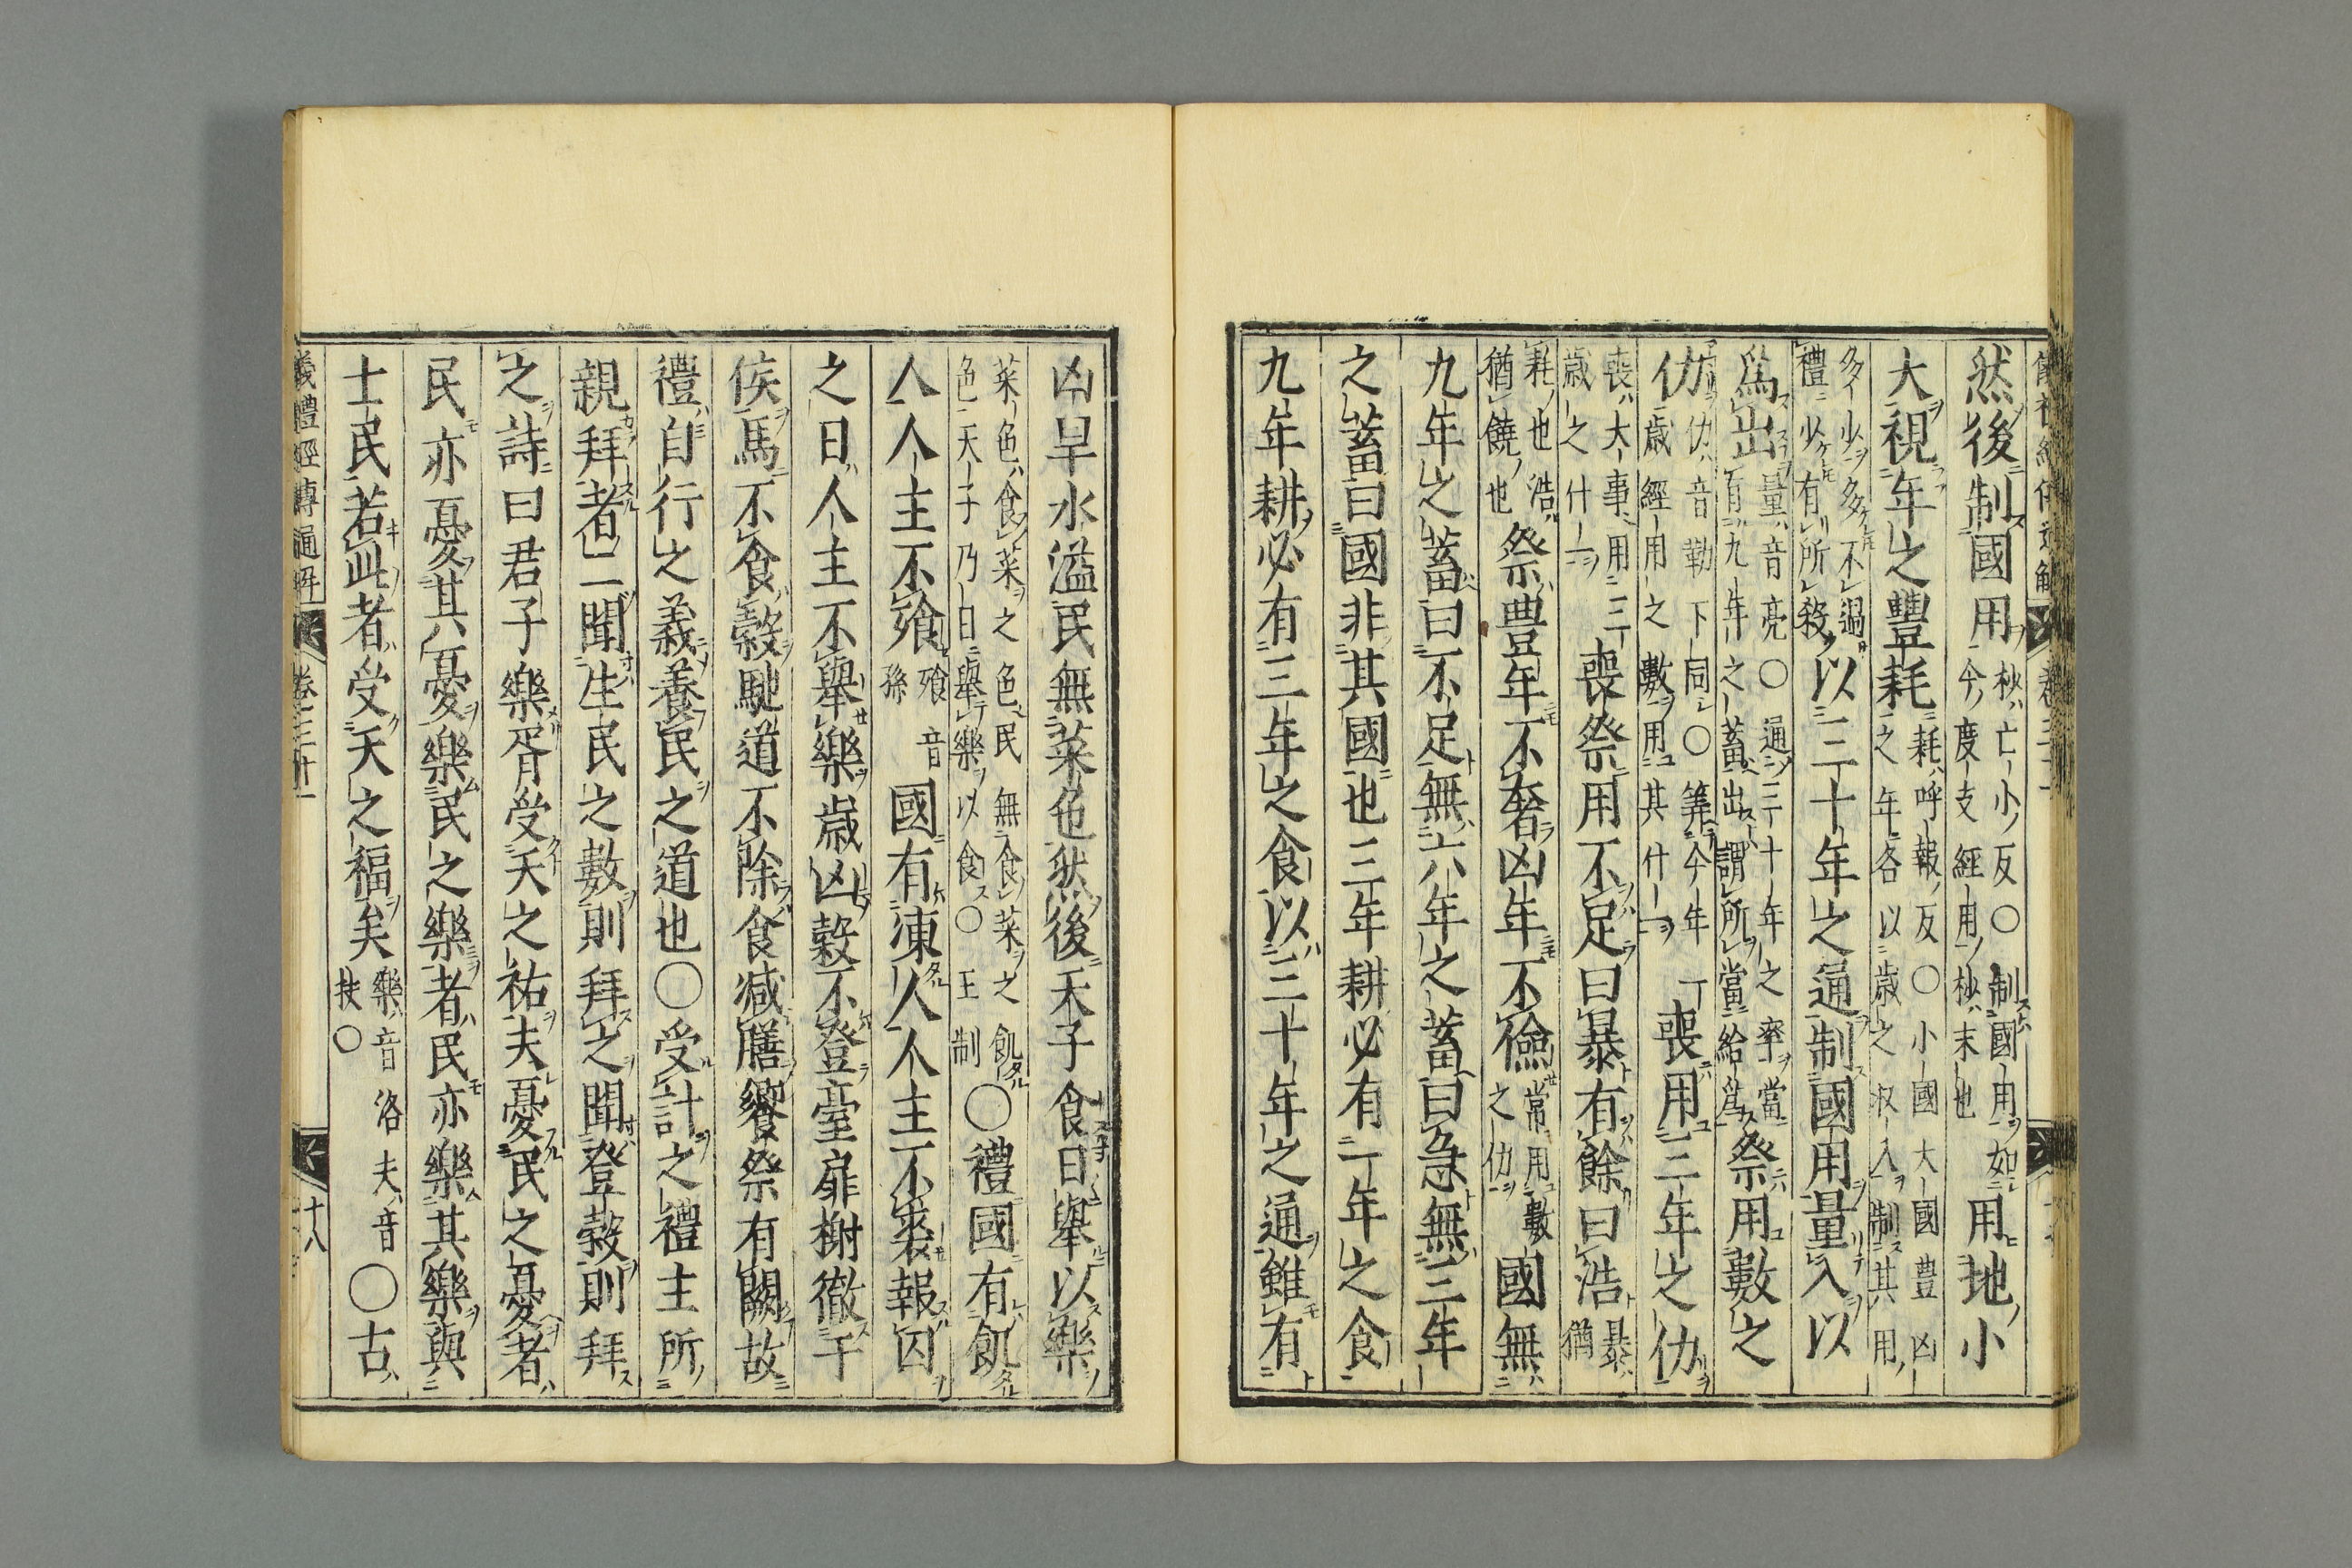 然後制國用杪亡小反○制國用如今度支經用杪末也用地小
大視年之豐耗耗呼報反○小國大國豊凶之年各以歳之収入制其用
多少多不過禮少有所殺以三十年之通制國用量入以
爲出量音亮○通三十年之率當有九年之蓄出謂所當給爲祭用數之
仂仂音勒下同○筭今年一歳經用之數用其什一喪用三年之仂
喪大事用三歳之什一喪祭用不足曰暴有餘曰浩暴猶
耗也浩猶饒也祭豊年不奢凶年不儉常用數之仂國無
九年之蓄曰不足無六年之蓄曰急無三年
之蓄曰國非其國也三年耕必有一年之食
九年耕必有三年之食以三十年之通雖有
凶旱水溢民無菜色然後天子食日舉以樂
菜色食菜之色民無食菜之飢色天子乃日舉樂以食○王制○禮國有飢
人人主不飧飧音孫國有凍人人主不裘報囚
之日人主不舉樂歳凶穀不登臺扉榭徹干
侯馬不食穀馳道不除食减膳饗祭有闕故
禮自行之義養民之道也○受計之禮主所
親拜者二聞生民之數則拜之聞登穀則拜
之詩曰君子樂胥受天之祐夫憂民之憂者
民亦憂其憂樂民之樂者民亦樂其樂與
士民若此者受天之福矣樂音洛夫音扶○○古
儀禮經傳通解 卷三十一 十八